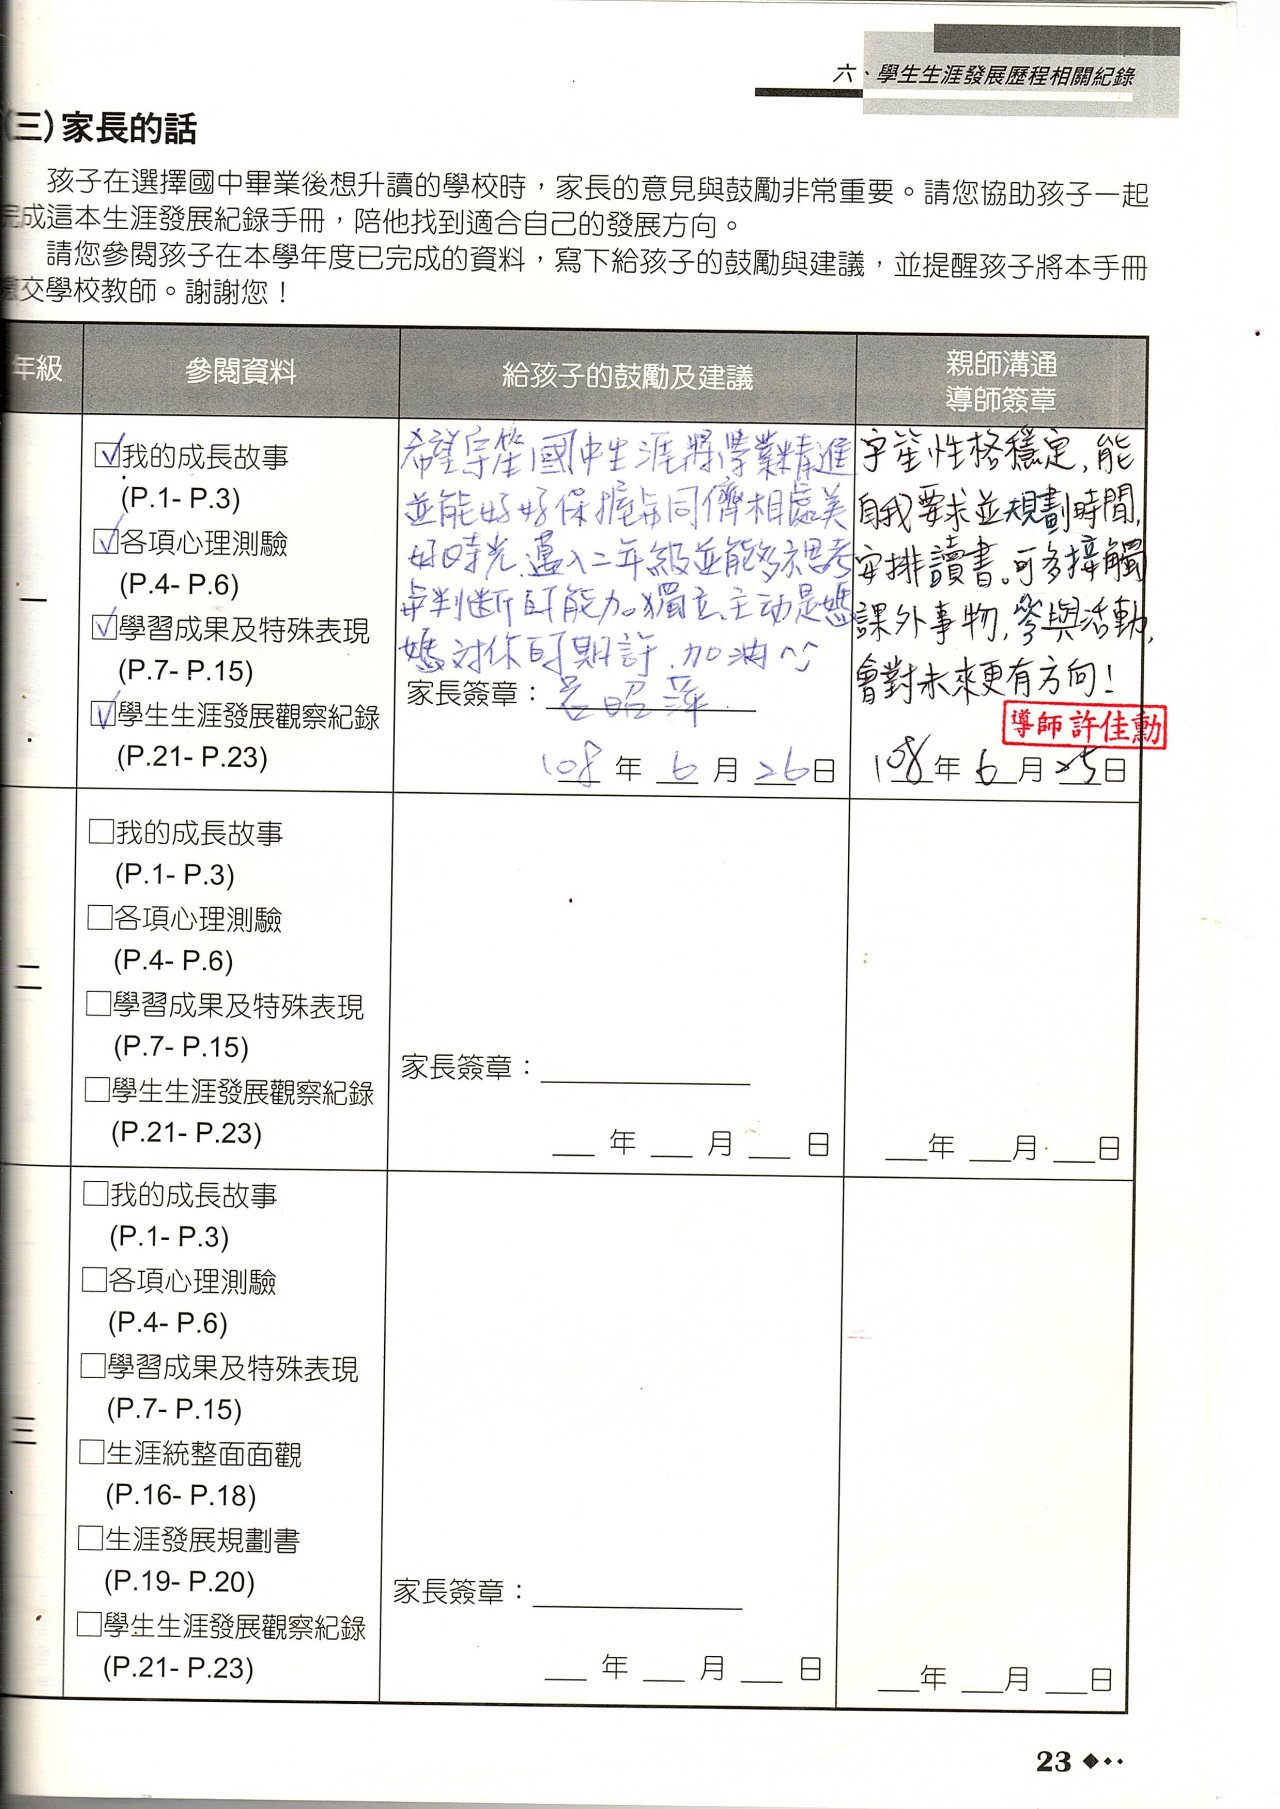 六、學生生涯發展歷程相關紀錄
(三)家長的話
孩子在選擇國中畢業後想升讀的學校時，家長的意見與鼓勵非常重要。請您協助孩子一起
完成這本生涯發展紀錄手冊，陪他找到適合自己的發展方向。
請您參閱孩子在本學年度已完成的資料，寫下給孩子的鼓勵與建議，並提醒孩子將本手冊
交學校教師。謝謝您！
年級
參閱資料
給孩子的鼓勵及建議
親師溝通
導師簽章
一
☑我的成長故事
(P.1- P.3)
☑各項心理測驗
(P.4- P.6)
☑學習成果及特殊表現
(P.7- P.15)
☑學生生涯發展觀察紀錄
(P.21- P.23)
希望宇笙國中生涯將學業精進
並能好好保握與同儕相處美
好時光、邁入二年級並能多思考
與判斷的能力。獨立、主動是媽
媽對你的期許、加油^^
家長簽章：昭萍
108年6月26日
宇笙性格穩定，能
自我要求並規劃時間，
安排讀書。可多接觸
課外事物，參與活動，
會對未來更有方向！
導師 許佳勳
108年6月25日
二
□我的成長故事
(P.1- P.3)
□各項心理測驗
(P.4- P.6)
□學習成果及特殊表現
(P.7- P.15)
□學生生涯發展觀察紀錄
(P.21- P.23)
家長簽章：
年 月 日
年 月 日
三
□我的成長故事
(P.1- P.3)
□各項心理測驗
(P.4- P.6)
□學習成果及特殊表現
(P.7- P.15)
□生涯統整面面觀
(P.16- P.18)
□生涯發展規劃書
(P.19- P.20)
□學生生涯發展觀察紀錄
(P.21- P.23)
家長簽章：
年 月 日
年 月 日
23